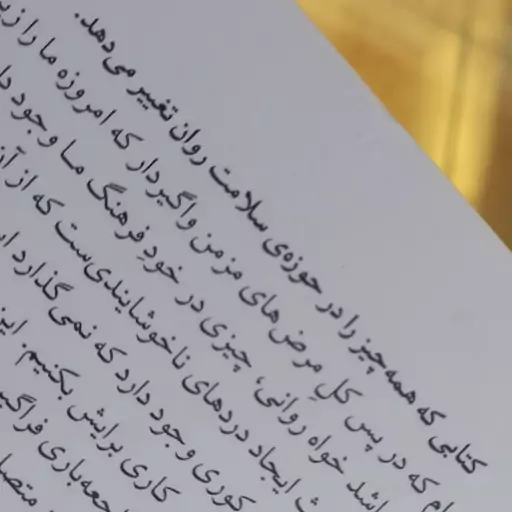 کتابی که همه چیز را در حوزه‌ی سلامت روان تغییر می‌دهد.
که در پس کلِ مرض‌های مزمن واگیردار که امروزه ما را
خواه روانی، چیزی در خودِ فرهنگ ما وجود
ایجاد دردهای ناخوشایندی‌ست که از
کوری وجود دارد که نمی‌گذارد
کاری برایش بکنیم.
فراگیر